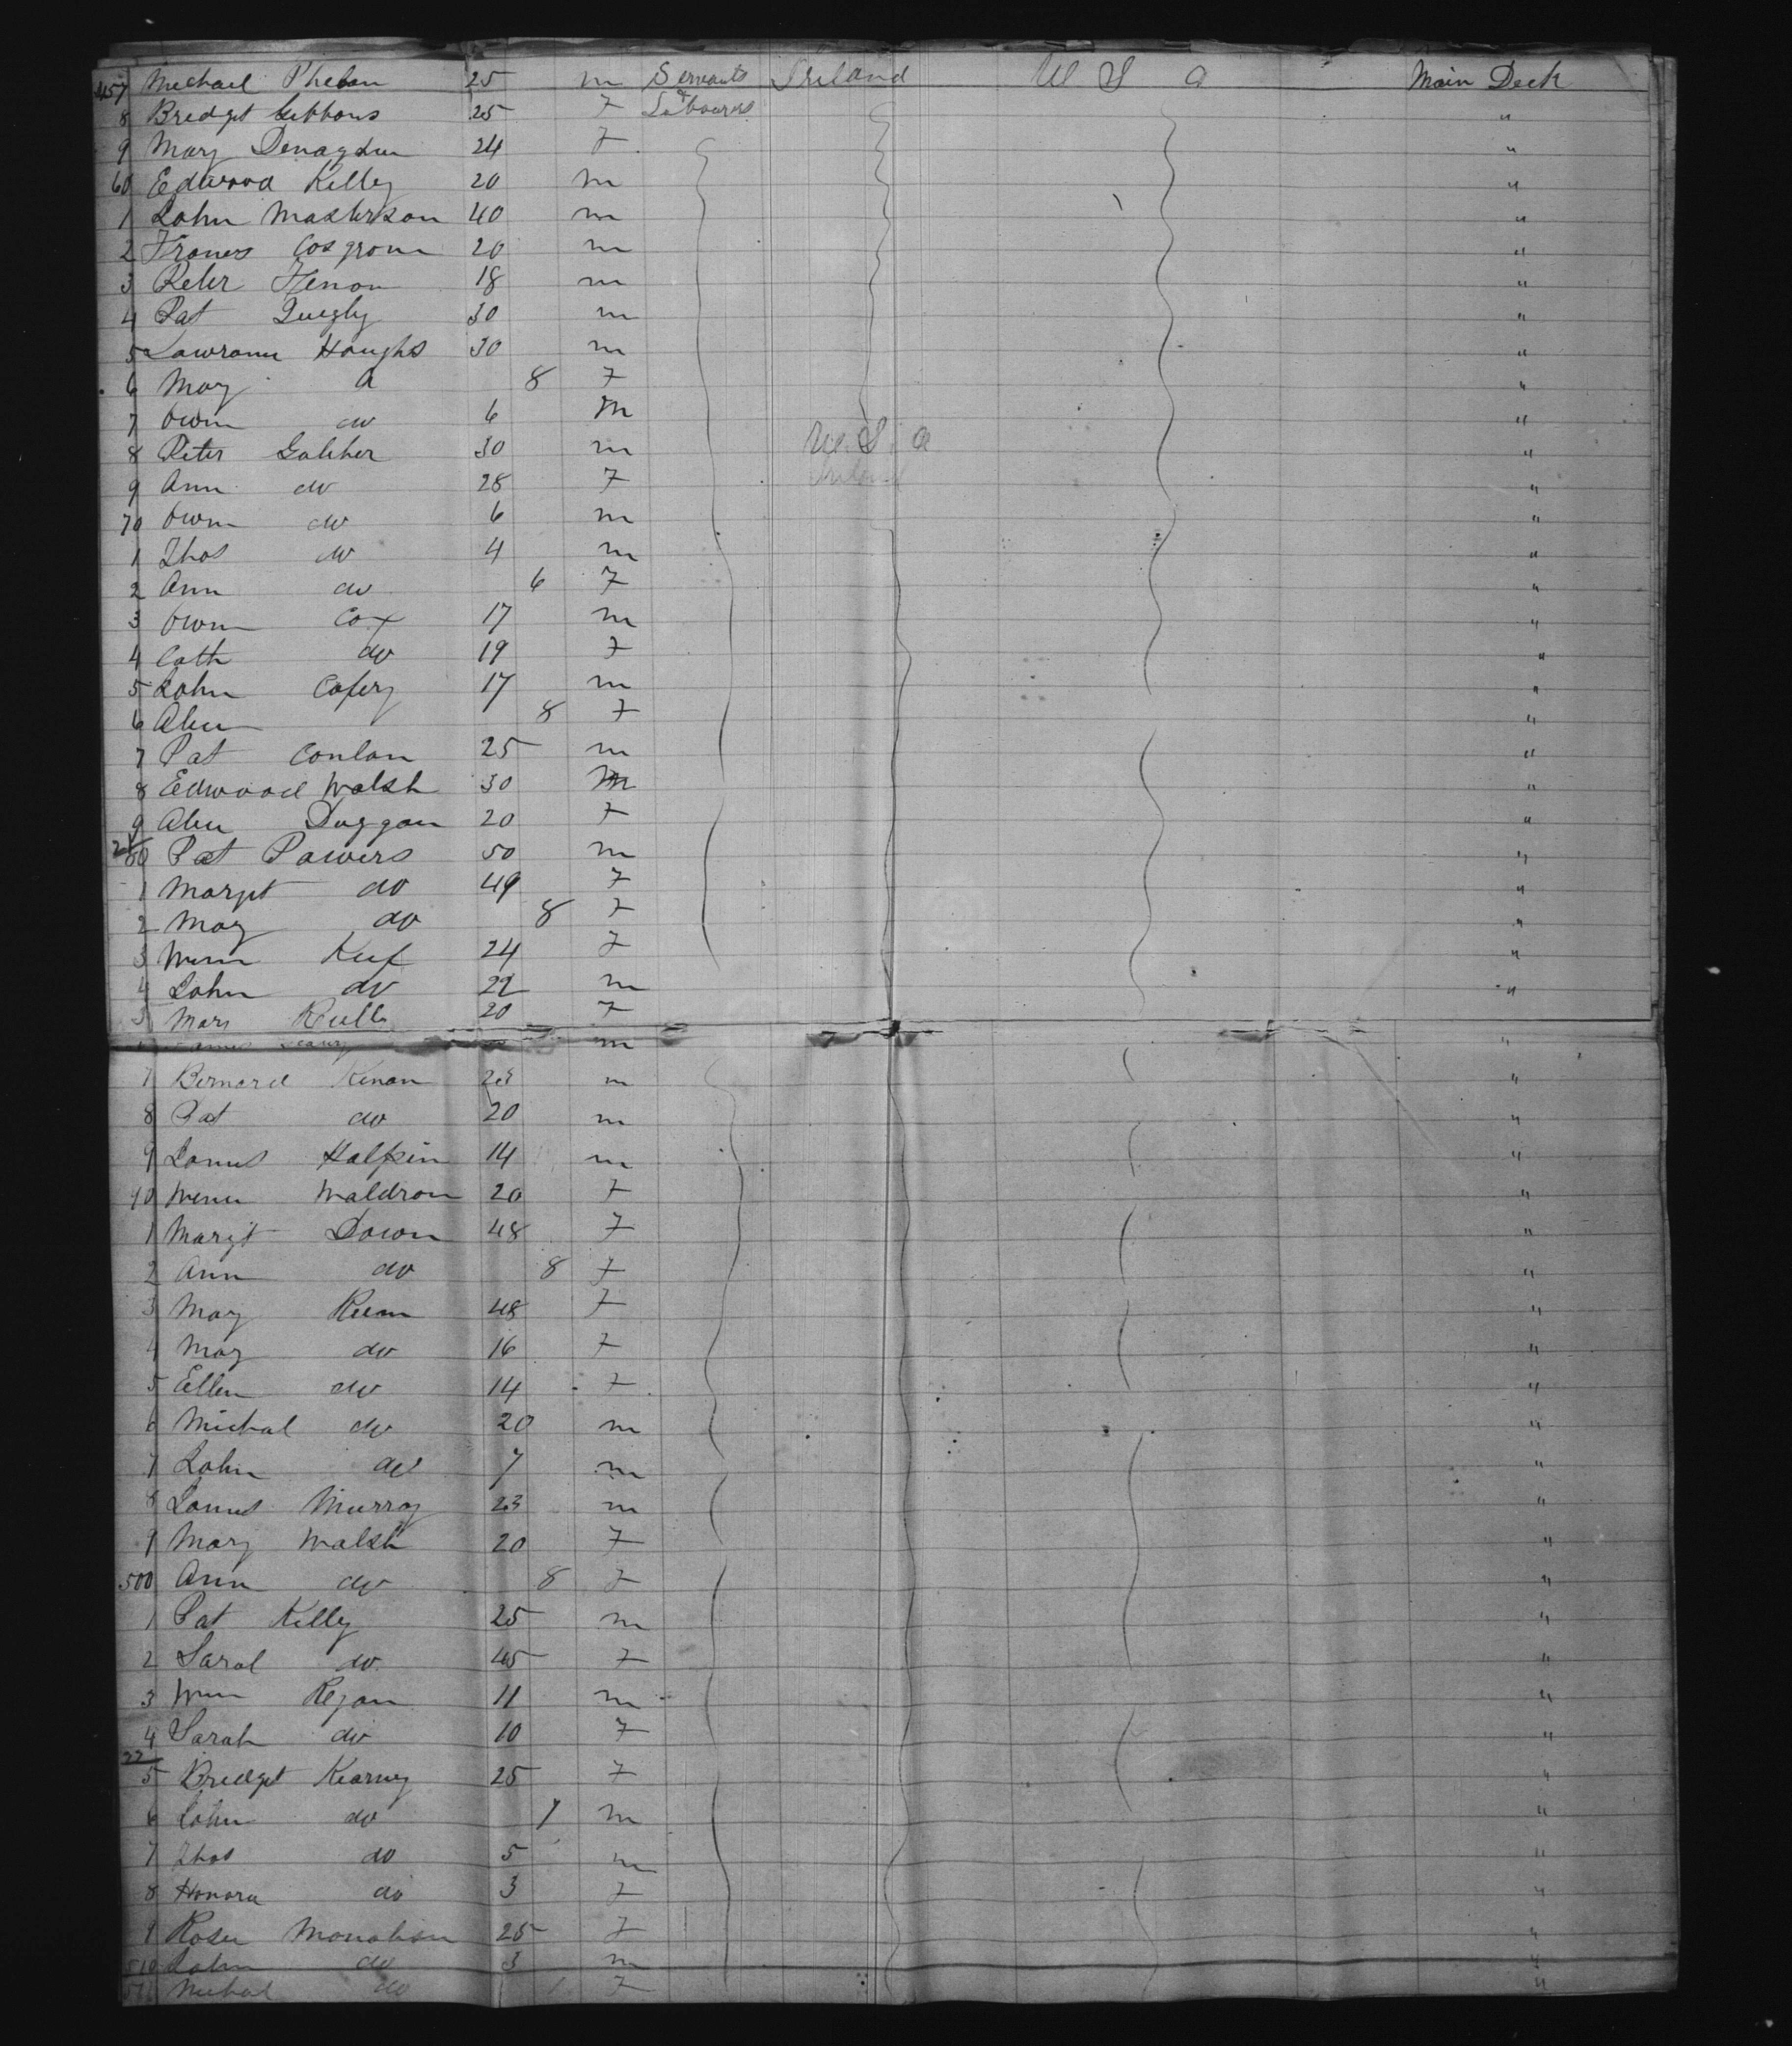 457 Michael Phelan 25 m Servants Ireland U S a Main Deck
8 Bridget Gibbons 25 F & Labourers "
9 Mary 24 F "
60 Edward Kelly 20 m "
1 John Masterson 40 m "
2 Frances Cosgrove 20 m "
3 Peter 18 m "
4 Pat Quigly 30 m "
5 Lawrance Houghs 30 m "
6 Mary 8 F "
7 Owen do 6 m "
8 Peter Galiher 30 m U. S. a "
9 Ann do 28 F Ireland "
70 Owen do 6 m "
1 Thos do 4 m "
2 Ann do 6 F "
3 Owen Cox 17 m "
4 Cath do 19 F "
5 John Cafery 17 m "
6 8 F "
7 Pat Conlan 25 m "
8 Edward Walsh 30 m "
9 Duggan 20 F "
21
80 Pat Powers 50 m "
1 Margt do 49 F "
2 Mary do 8 F "
3 Keef 24 F "
4 John do 22 m "
5 Mary 20 F "
m "
7 Bernard Kenan 23 m "
8 Pat do 20 m "
9 James Halpin 14 m "
90 Waldron 20 F "
1 Margt 48 F "
2 Ann do 8 F "
3 Mary 48 F "
4 Mary do 16 F "
5 Ellen do 14 F "
6 Michal do 20 m "
7 John do 7 m "
8 James Murray 23 m "
9 Mary Walsh 20 F "
500 Ann do 8 F "
1 Pat Kelly 25 m "
2 Sarah do 45 F "
3 Wm Regan 11 m "
4 Sarah do 10 F "
22
5 Bridget Kearney 25 F "
6 John do 7 m "
7 Thos do 5 m "
8 Honora do 3 F "
9 Rose 25 F "
510 John do 3 m "
511 Michal do F "